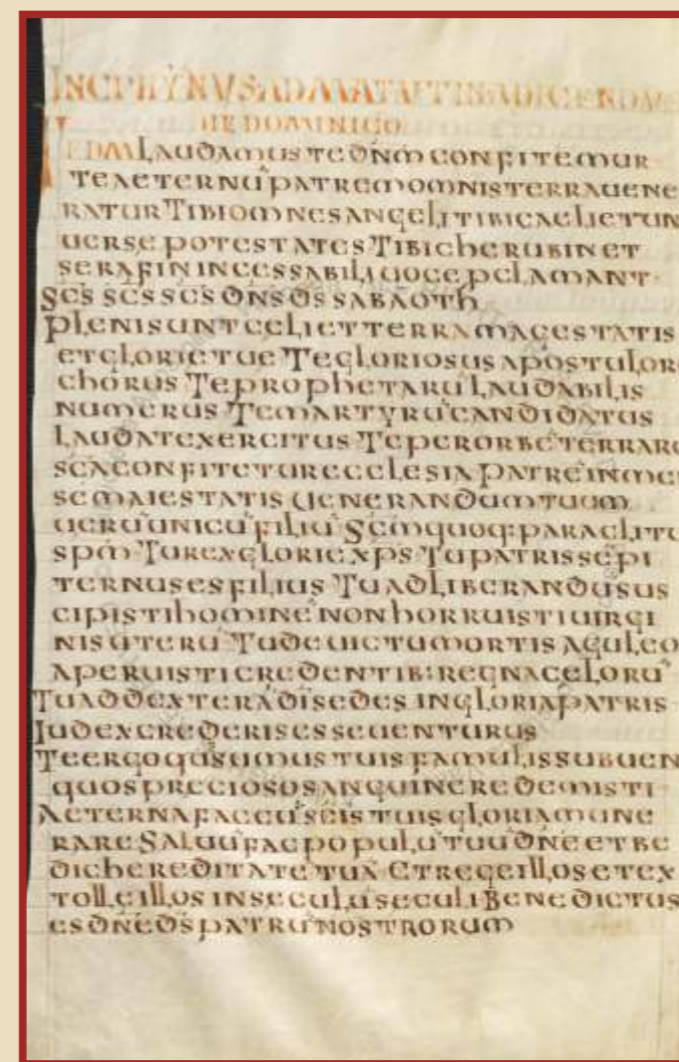 INCP HYNUS AD MATUTIN ADICENDUS
DIE DOMINICO
TEDM LAUDAMUS TE DNM CONFITEMUR
TE AETERNŪ PATREM OMNIS TERRA UENE
RATUR TIBI OMNES ANGELI TIBI CAELI ET UN
UERSE POTESTATES TIBI CHERUBIN ET
SERAFIN INCESSABILI UOCE PCLAMANT
SCS SCS SCS DNS DS SABAOTH
PLENI SUNT CELI ET TERRA MAGESTATIS
ET GLORIE TUE TE GLORIOSUS APOSTULORŪ
CHORUS TE PROPHETARŪ LAUDABILIS
NUMERUS TE MARTYRŪ CANDIDATUS
LAUDAT EXERCITUS TE PER ORBĒ TERRARŪ
SCA CONFITETUR ECCLESIA PATRĒ INMEN
SE MAIESTATIS UENERANDUM TUUM
UERŪ UNICŪ FILIŪ SCM QUOQ: PARACLITŪ
SPM TU REX GLORIE XPS TU PATRIS SEPI
TERNUS ES FILIUS TU AD LIBERANDU SUS
CIPISTI HOMINĒ NON HORRUISTI UIRGI
NIS UTERŪ TU DEUICTU MORTIS AGULEO
APERUISTI CREDENTIB: REGNA CELORŪ
TU AD DEXTERĀ DĪ SEDES IN GLORIA PATRIS
IUDEX CREDERIS ESSE UENTURUS
TE ERGO QUSUMUS TUIS FAMULIS SUBUEN
QUOS PRECIOSO SANGUINE REDEMISTI
AETERNA FAC CŪ SCIS TUIS GLORIA MUNE
RARE SALUŪ FAC POPULŪ TUŪ DNE ET BE
DIC HEREDITATE TUĀ ET REGE ILLOS ET EX
TOLLE ILLOS IN SECULŪ SECULI BENEDICTUS
ES DNE DS PATRŪ NOSTRORUM